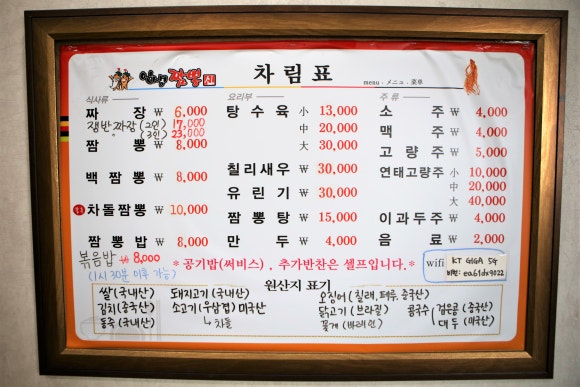 차림표
menu . メニュー . 菜单
식사류
짜 장 ₩ 6,000
쟁반짜장 (2인) 17,000
(3인) 23,000
짬 뽕 ₩ 8,000
백짬뽕 ₩ 8,000
차돌짬뽕 ₩ 10,000
짬뽕밥 ₩ 8,000
볶음밥 ₩ 8,000
(1시 30분 이후 가능)
요리부
탕수육 小 13,000
中 20,000
大 30,000
칠리새우 ₩ 30,000
유린기 ₩ 30,000
짬뽕탕 ₩ 15,000
만 두 ₩ 4,000
주 류
소 주 ₩ 4,000
맥 주 ₩ 4,000
고량주 ₩ 5,000
연태고량주 小 10,000
中 20,000
大 40,000
이과두주 ₩ 4,000
음 료 ₩ 2,000
* 공기밥(써비스) , 추가반찬은 셀프입니다.*
wifi KT GIGA 5G
원산지 표기
쌀(국내산) 돼지고기(국내산) 오징어(칠레,페루,중국산)
김치(중국산) 소고기(우삼겹)미국산 닭고기(브라질) 콩국수 검은콩(중국산)
동죽(국내산) ↳차돌 꽃게(바레인) 대두(미국산)